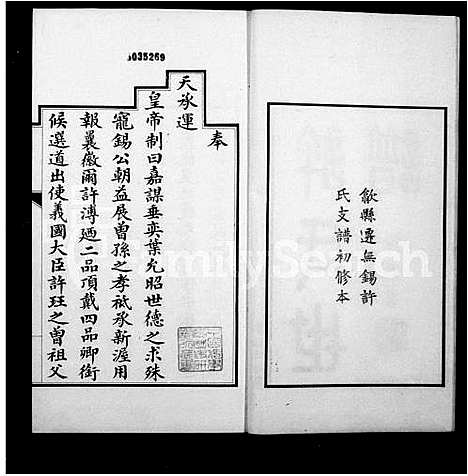 歙縣遷無錫許
氏支譜初修本
0035269
奉
天承運
皇帝制曰嘉謀垂奕葉允昭世德之求殊
寵錫公朝益展曾孫之孝祗承新渥用
報曩徽爾許溥廼二品頂戴四品卿銜
候選道出使義國大臣許珏之曾祖父
FamilySearch